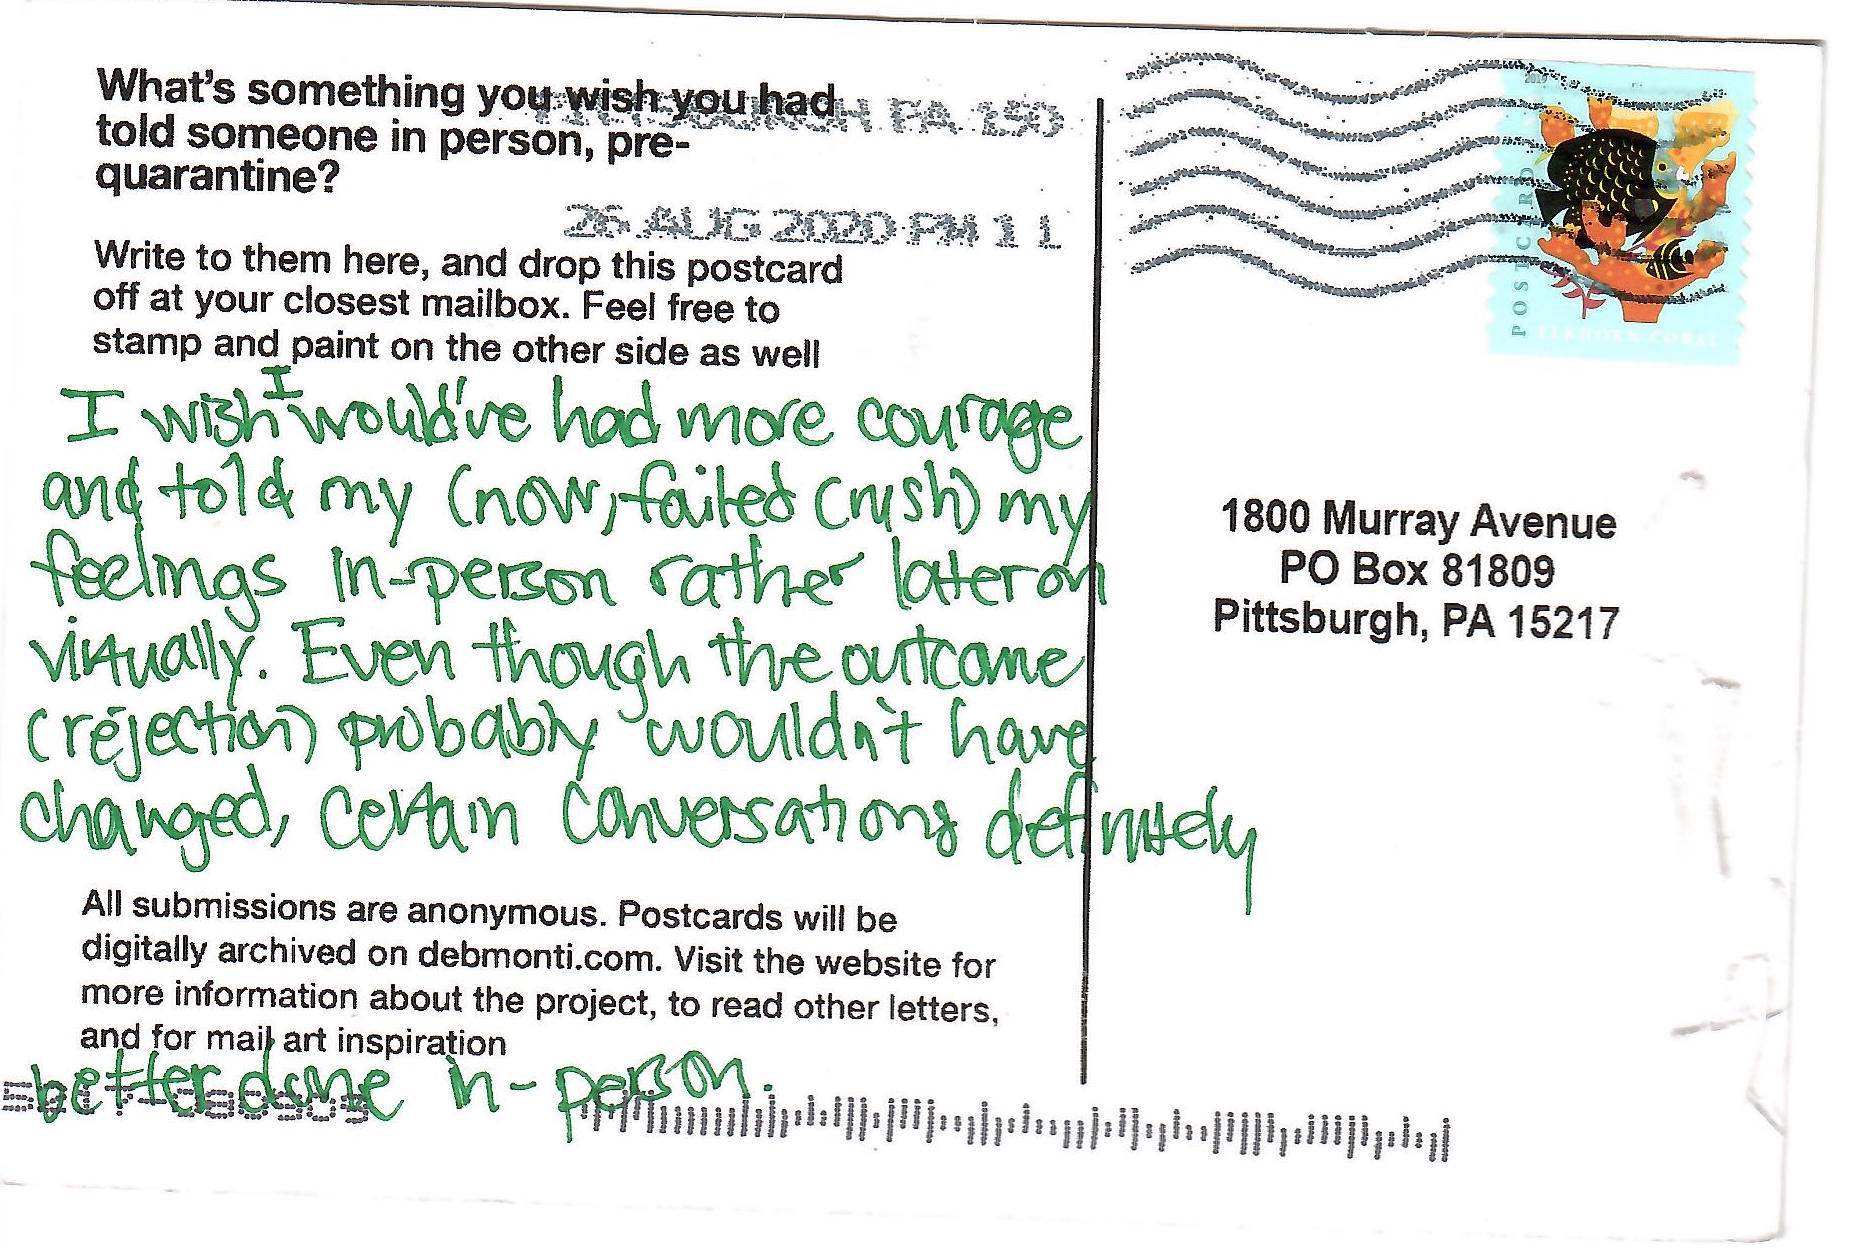 What's something you wish you had
told someone in person, pre-
quarantine?
PITTSBURGH PA 150
26 AUG 2020 PM 1 L
Write to them here, and drop this postcard
off at your closest mailbox. Feel free to
stamp and paint on the other side as well
I wish I would've had more courage
and told my (now, failed crush) my
feelings in-person rather later on
virtually. Even though the outcome
(rejection) probably wouldn't have
changed, certain conversations definitely
All submissions are anonymous. Postcards will be
digitally archived on debmonti.com. Visit the website for
more information about the project, to read other letters,
and for mail art inspiration
better done in-person.
POSTCARD
ELKHORN CORAL
1800 Murray Avenue
PO Box 81809
Pittsburgh, PA 15217